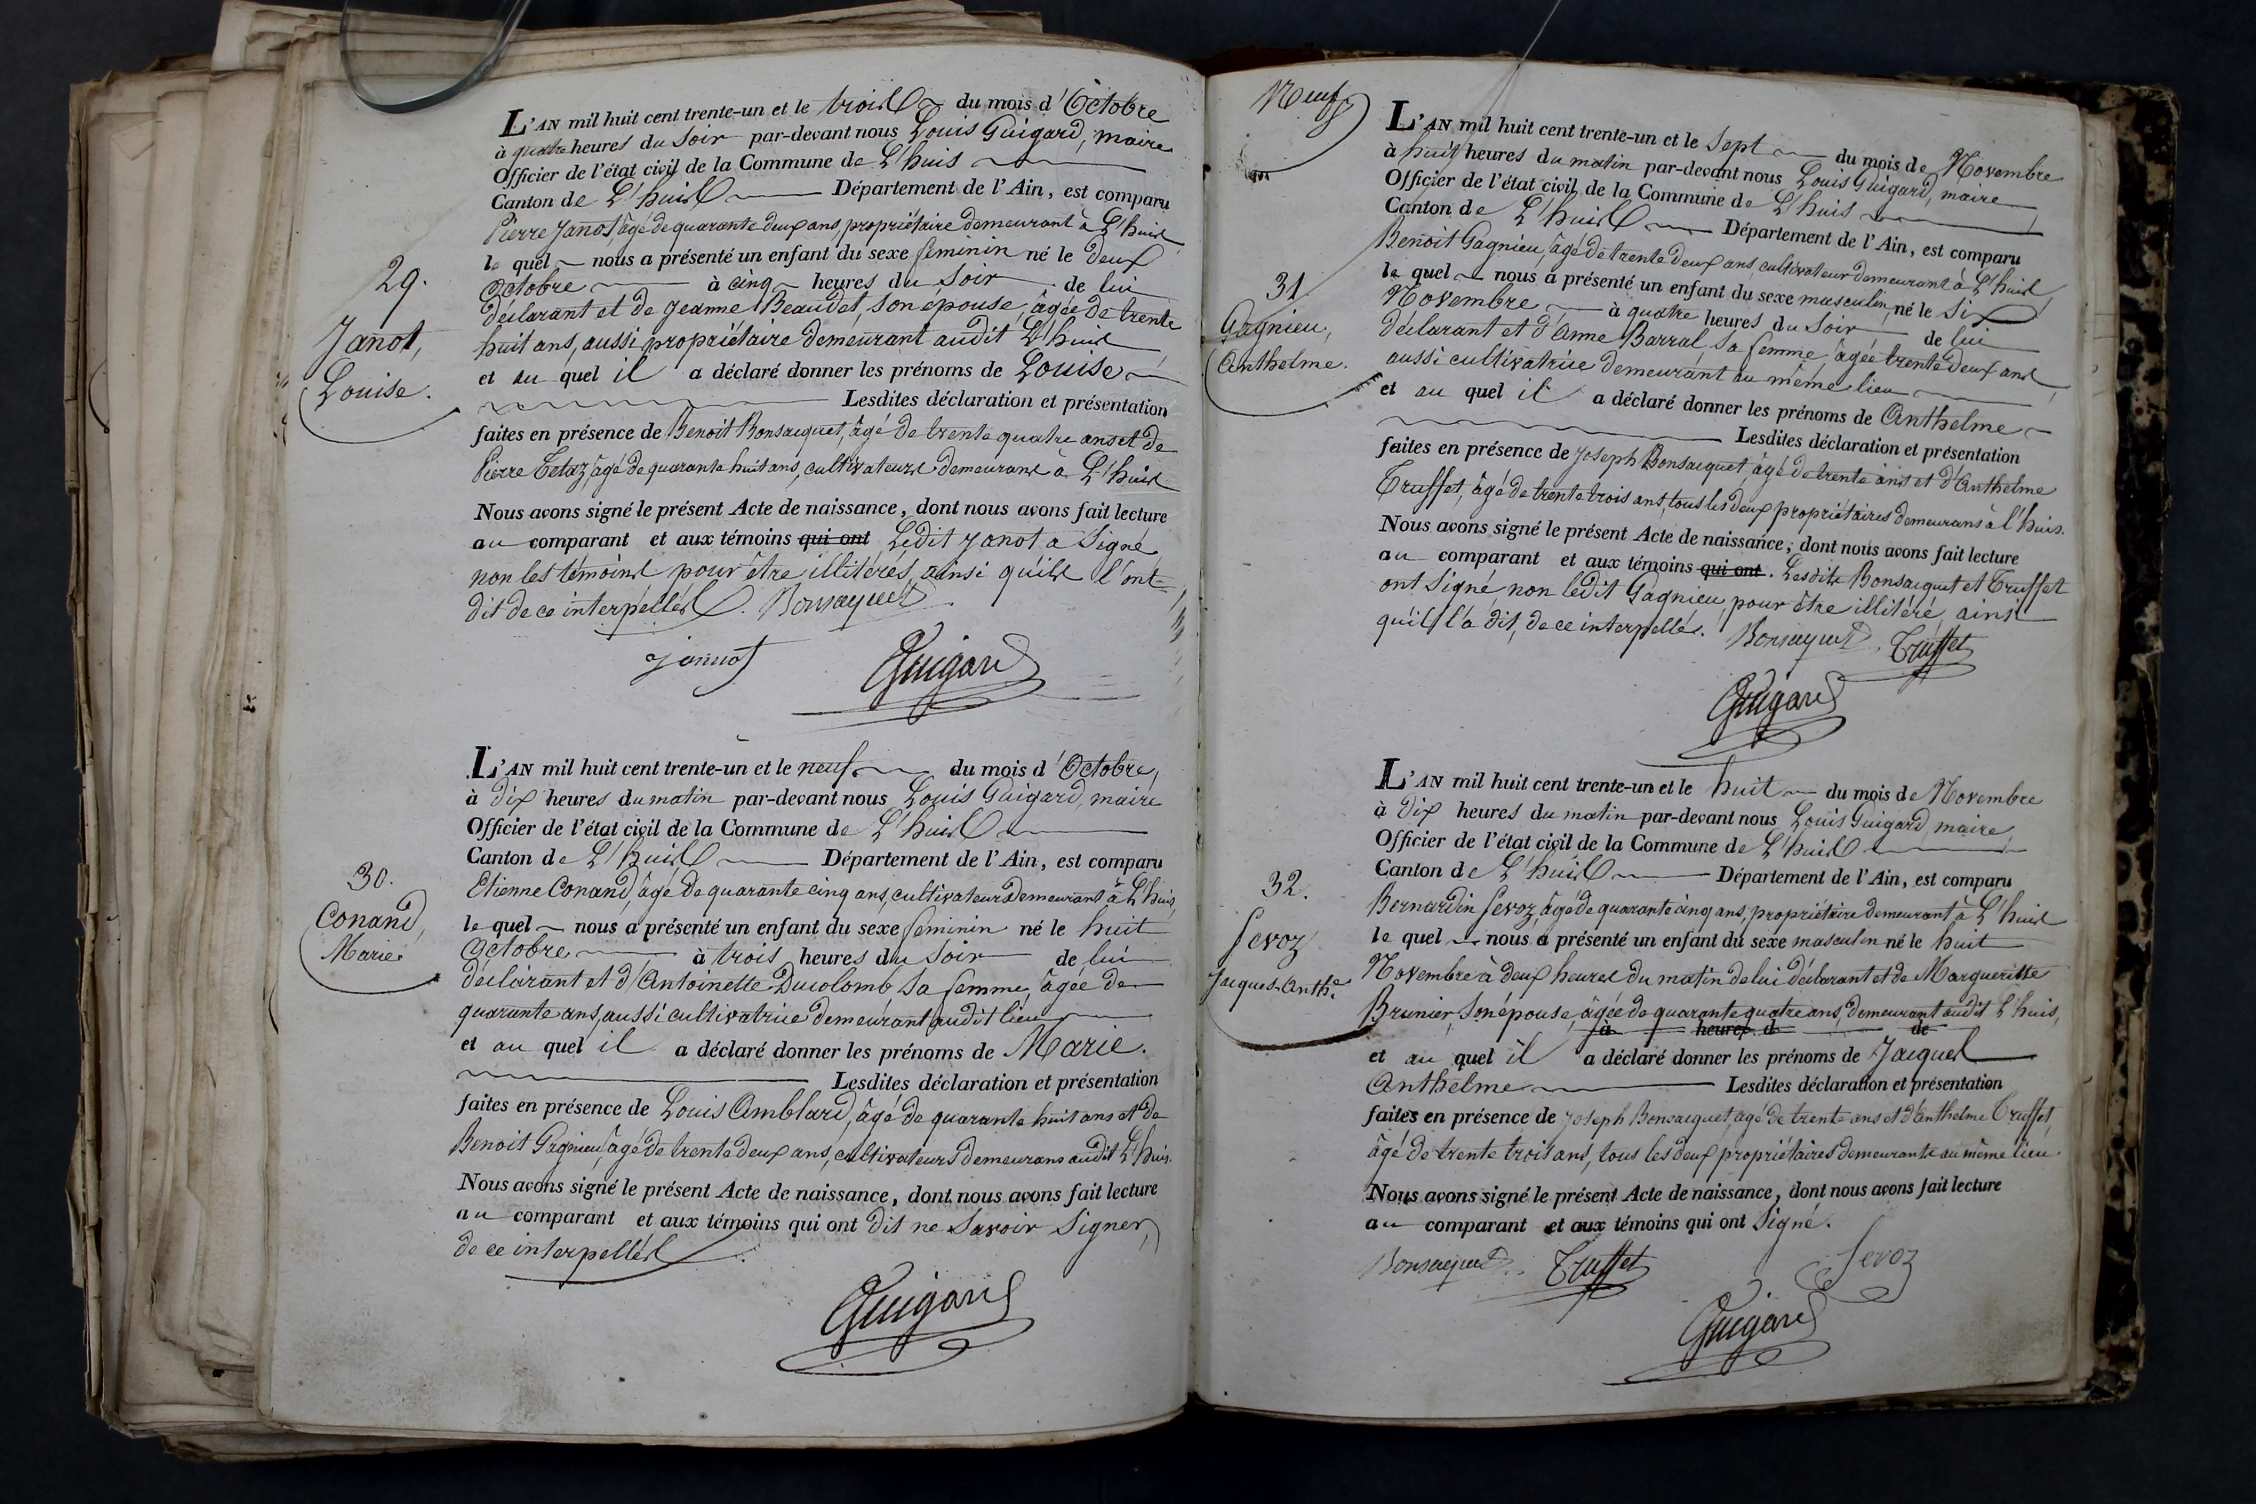 29.
Janot,
Louise.
L'AN mil huit cent trente-un et le trois du mois d'Octobre
à quatre heures du soir par-devant nous Louis Guigard, maire
Officier de l'état civil de la Commune de L'huis
Canton de L'huis Département de l'Ain, est comparu
Pierre Janot, âgé de quarante deux ans, propriétaire demeurant à L'huis
le quel nous a présenté un enfant du sexe feminin né le deux
Octobre à cinq heures du soir de lui
déclarant et de Jeanne Beaudet, son épouse, âgée de trente
huit ans, aussi propriétaire demeurant audit L'huis
et au quel il a déclaré donner les prénoms de Louise
Lesdites déclaration et présentation
faites en présence de Benoit Bonsacquet, âgé de trente quatre ans et de
Pierre Tetaz, âgé de quarante huit ans, cultivateurs demeurans à L'huis
Nous avons signé le présent Acte de naissance, dont nous avons fait lecture
au comparant et aux témoins qui ont Ledit Janot a signé
non les témoins pour être illitérés, ainsi qu'ils l'ont
dit de ce interpellés. Bonsacquet
Jannot Guigard
30.
Conand,
Marie.
L'AN mil huit cent trente-un et le neuf du mois d'Octobre,
à dix heures du matin par-devant nous Louis Guigard, maire
Officier de l'état civil de la Commune de L'huis
Canton de L'huis Département de l'Ain, est comparu
Etienne Conand, âgé de quarante cinq ans, cultivateur demeurant à L'huis,
le quel nous a présenté un enfant du sexe feminin né le huit
Octobre à trois heures du soir de lui
déclarant et d'Antoinette Ducolomb sa femme, âgée de
quarante ans, aussi cultivatrice demeurant audit lieu
et au quel il a déclaré donner les prénoms de Marie.
Lesdites déclaration et présentation
faites en présence de Louis Amblard, âgé de quarante huit ans et de
Benoit Gagnieu, âgé de trente deux ans, cultivateurs demeurans audit L'huis.
Nous avons signé le présent Acte de naissance, dont nous avons fait lecture
au comparant et aux témoins qui ont dit ne savoir signer,
de ce interpellés
Guigard
Neuf
31
Gagnieu,
Anthelme.
L'AN mil huit cent trente-un et le sept du mois de Novembre
à huit heures du matin par-devant nous Louis Guigard, maire
Officier de l'état civil de la Commune de L'huis
Canton de L'huis Département de l'Ain, est comparu
Benoit Gagnieu, âgé de trente deux ans, cultivateur demeurant à L'huis
le quel nous a présenté un enfant du sexe masculin, né le six
Novembre à quatre heures du soir de lui
déclarant et d'Anne Barral sa femme, âgée trente deux ans
aussi cultivatrice demeurant au même lieu
et au quel il a déclaré donner les prénoms de Anthelme
Lesdites déclaration et présentation
faites en présence de Joseph Bonsacquet, âgé de trente ans et d'Anthelme
Truffet, âgé de trente trois ans, tous les deux propriétaires demeurans à l'huis.
Nous avons signé le présent Acte de naissance, dont nous avons fait lecture
au comparant et aux témoins qui ont. Lesdits Bonsacquet et Truffet
ont signé, non ledit Gagnieu pour être illitéré, ainsi
qu'il l'a dit, de ce interpellé. Bonsacquet. Truffet
Guigard
32.
Sevoz
Jacques-Anthe.
L'AN mil huit cent trente-un et le huit du mois de Novembre
à dix heures du matin par-devant nous Louis Guigard, maire,
Officier de l'état civil de la Commune de L'huis
Canton de L'huis Département de l'Ain, est comparu
Bernardin Sevoz, âgé de quarante cinq ans, propriétaire demeurant à L'huis
le quel nous a présenté un enfant du sexe masculin né le huit
Novembre à deux heures du matin de lui déclarant et de Margueritte
Brunier, son épouse, âgée de quarante quatre ans, demeurant audit L'huis,
à heures d de
et au quel il a déclaré donner les prénoms de Jacques
Anthelme Lesdites déclaration et présentation
faites en présence de Joseph Bonsacquet, âgé de trente ans et d'Anthelme Truffet,
âgé de trente trois ans, tous les deux propriétaires demeurants au même lieu.
Nous avons signé le présent Acte de naissance, dont nous avons fait lecture
au comparant et aux témoins qui ont signé.
Bonsacquet. Truffet Sevoz
Guigard